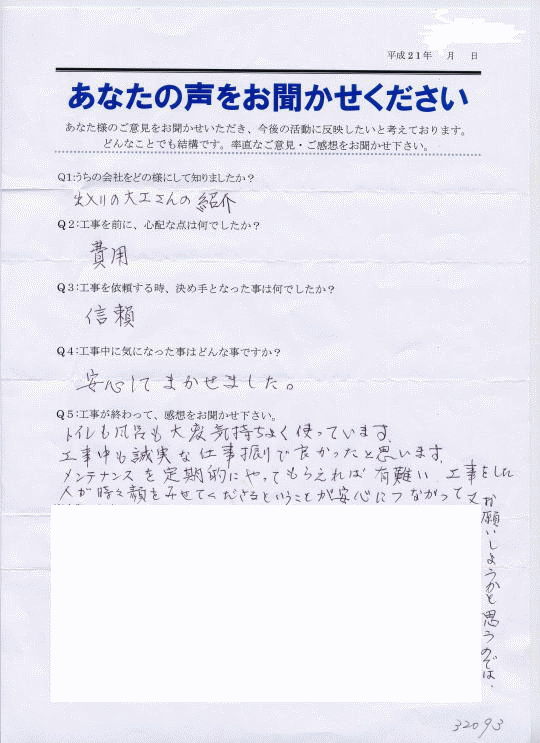 平成21年　月　日
あなたの声をお聞かせください
あなた様のご意見をお聞かせいただき、今後の活動に反映したいと考えております。
どんなことでも結構です。率直なご意見・ご感想をお聞かせ下さい。
Q1:うちの会社をどの様にして知りましたか?
出入りの大工さんの紹介
Q2:工事を前に、心配な点は何でしたか?
費用
Q3:工事を依頼する時、決め手となった事は何でしたか?
信頼
Q4:工事中に気になった事はどんな事ですか?
安心してまかせました。
Q5:工事が終わって、感想をお聞かせ下さい。
トイレも風呂も大変気持ちよく使っています。
工事中も誠実な仕事振りで良かったと思います。
メンテナンスを定期的にやってもらえれば有難い 工事をした
人が時々顔をみせてくださるということが安心につながって又
お願いしようかと思うのでは、
32093